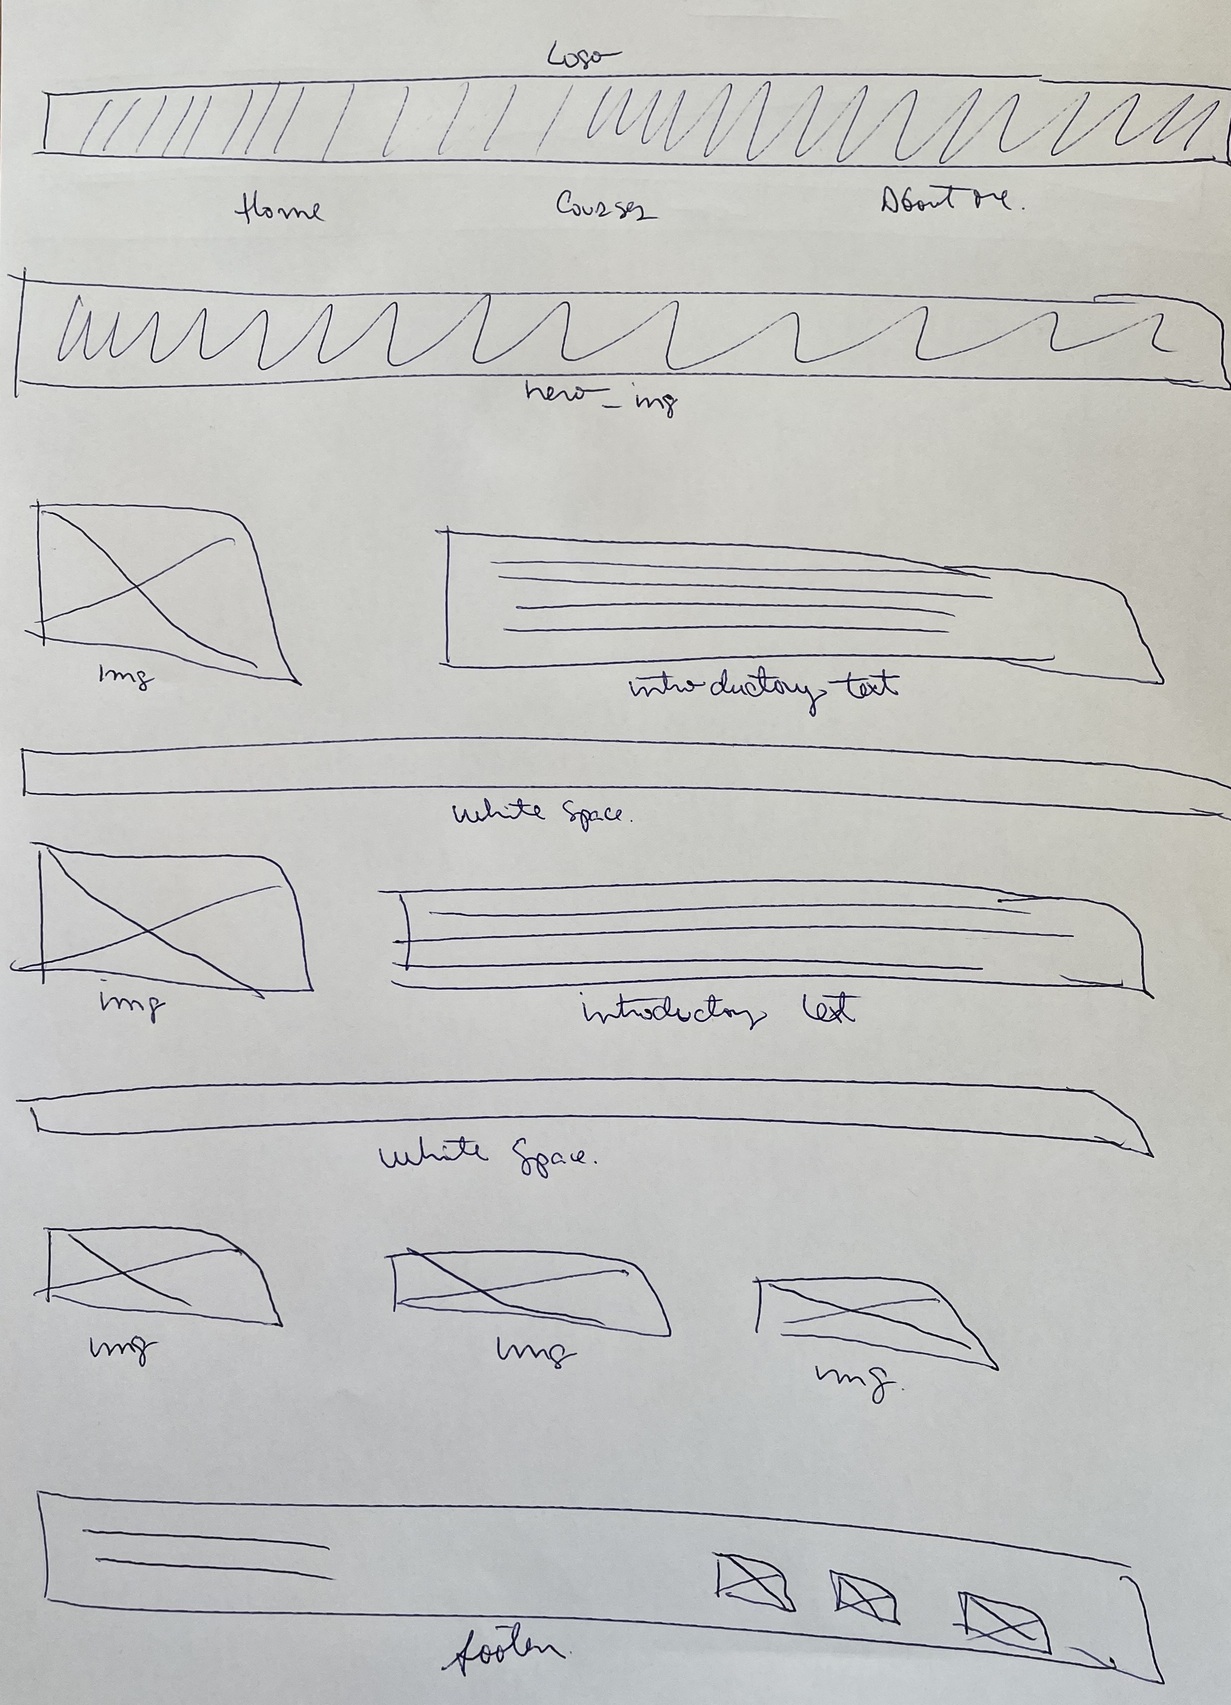 Logo
Home Courses About me.
hero_img
img introductory text
White Space.
img introductory text
White Space.
img img img.
footer